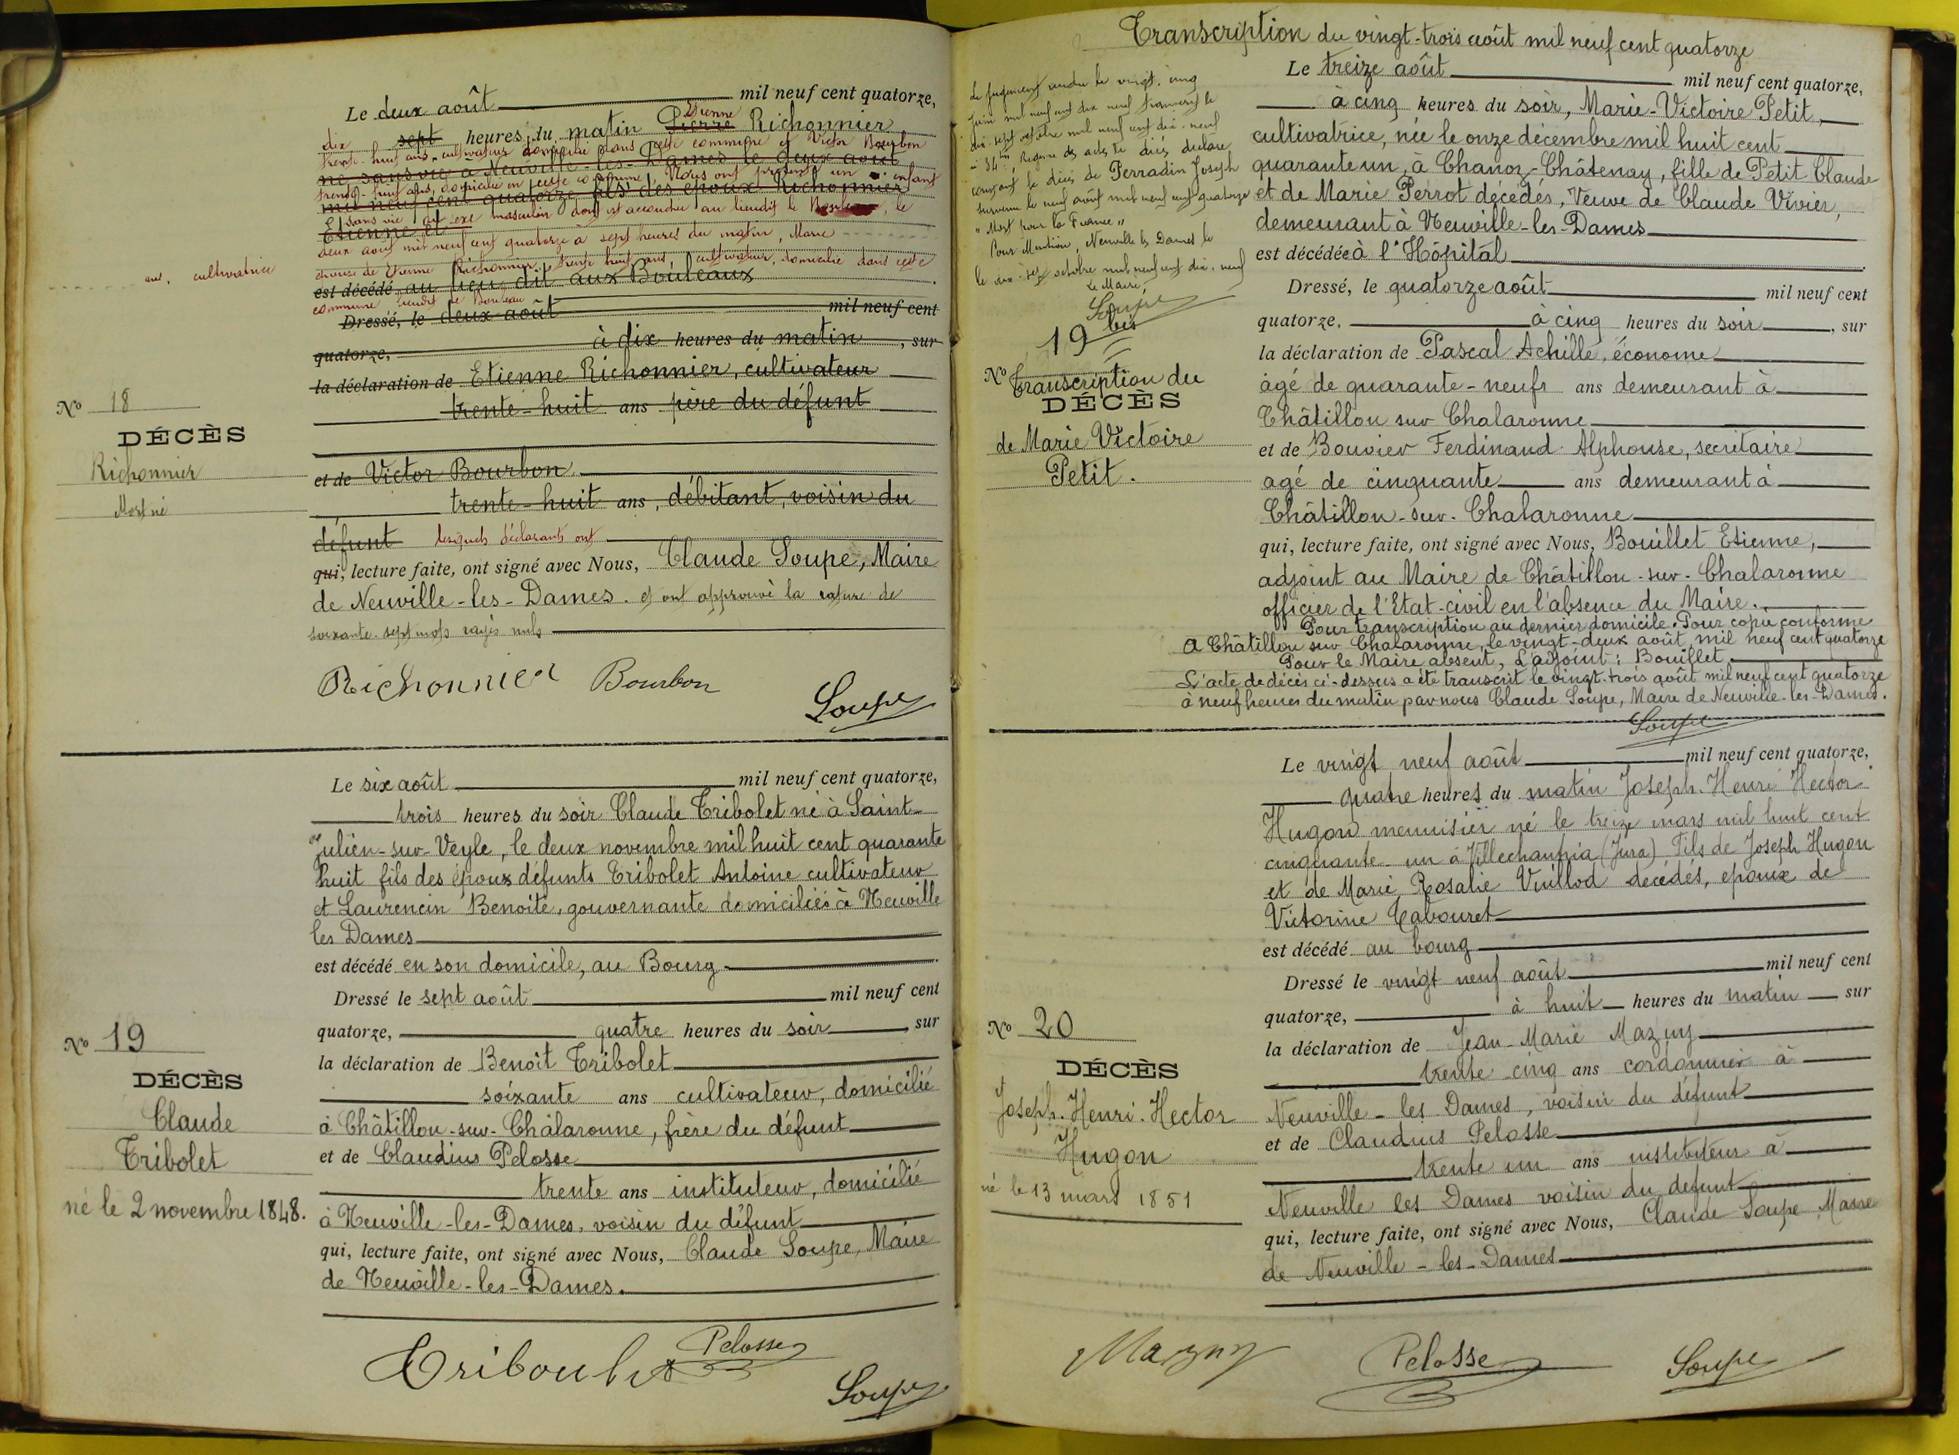 Le deux août mil neuf cent quatorze,
dix sept heures du matin Pierre Etienne Richonnier
trente huit ans, cultivateur domicilié dans cette commune et Victor Bourbon
né sans vie à Neuville-les-Dames le deux août
trente-huit ans, domicilié en cette commune Nous ont présenté un enfant
mil neuf cent quatorze fils des époux Richonnier
sans vie du sexe masculin dont est accouchée au lieudit le Bouleau, le
Etienne et
deux août mil neuf cent quatorze à sept heures du matin, Marie
ans, cultivatrice
épouse de Etienne Richonnier, trente huit ans, cultivateur, domicilié dans cette
est décédé au lieu dit aux Bouleaux
commune lieudit le Bouleau
Dressé, le deux août mil neuf cent
quatorze, à dix heures du matin, sur
la déclaration de Etienne Richonnier, cultivateur
trente-huit ans père du défunt
et de Victor Bourbon
trente-huit ans, débitant, voisin du
défunt lesquels déclarants ont
qui, lecture faite, ont signé avec Nous, Claude Soupe, Maire
de Neuville-les-Dames. et ont approuvé la rature de
soixante-sept mots rayés nuls
Nº 18
DÉCÈS
Richonnier
Mort né
Richonnier Bourbon
Soupe
Le six août mil neuf cent quatorze,
trois heures du soir Claude Tribolet né à Saint-
Julien-sur-Veyle, le deux novembre mil huit cent quarante
huit fils des époux défunts Tribolet Antoine cultivateur
et Laurencin Benoite, gouvernante domiciliés à Neuville
les Dames
est décédé en son domicile, au Bourg
Dressé le sept août mil neuf cent
quatorze, quatre heures du soir, sur
la déclaration de Benoît Tribolet
soixante ans cultivateur, domicilié
à Châtillon-sur-Chalaronne, frère du défunt
et de Claudius Pelosse
trente ans instituteur, domicilié
à Neuville-les-Dames, voisin du défunt
qui, lecture faite, ont signé avec Nous, Claude Soupe, Maire
de Neuville-les-Dames.
Nº 19
DÉCÈS
Claude
Tribolet
né le 2 novembre 1848.
Triboulet Pelosse
Soupe
Transcription du vingt-trois août mil neuf cent quatorze
Le jugement rendu le vingt-cinq
juin mil neuf cent dix neuf transcrit le
dix-sept octobre mil neuf cent dix-neuf
Registre des actes de décès déclare
constant le décès de Perradin Joseph
survenu le neuf août mil neuf cent quatorze
"Mort pour la France"
Pour Mention, Neuville les Dames le
le dix-sept octobre mil neuf cent dix-neuf
Le Maire,
Soupe
Le treize août mil neuf cent quatorze,
à cinq heures du soir, Marie-Victoire Petit,
cultivatrice, née le onze décembre mil huit cent
quarante un, à Chanoz-Châtenay, fille de Petit Claude
et de Marie Perrot décédés, Veuve de Claude Vivier,
demeurant à Neuville-les-Dames
est décédée à l'Hôpital
Dressé, le quatorze août mil neuf cent
quatorze, à cinq heures du soir, sur
la déclaration de Pascal Achille, économe
âgé de quarante-neufs ans demeurant à
Châtillon sur Chalaronne
et de Bouvier Ferdinand Alphonse, secrétaire
agé de cinquante ans demeurant à
Châtillon-sur-Chalaronne
qui, lecture faite, ont signé avec Nous, Bouillet Etienne,
adjoint au Maire de Châtillon-sur-Chalaronne
officier de l'Etat-civil en l'absence du Maire.
Pour transcription au dernier domicile. Pour copie conforme
A Châtillon sur Chalaronne, le vingt-deux août mil neuf cent quatorze
Pour le Maire absent, L'adjoint: Bouillet
L'acte de décès ci-dessus a été transcrit le vingt-trois août mil neuf cent quatorze
à neuf heures du matin par nous Claude Soupe, Maire de Neuville-les-Dames.
Soupe
Nº 19 bis
Transcription du
DÉCÈS
de Marie Victoire
Petit.
Le vingt neuf août mil neuf cent quatorze,
quatre heures du matin Joseph-Henri Hector
Hugon menuisier né le treize mars mil huit cent
cinquante-un à Villechantria (Jura) Fils de Joseph Hugon
et de Marie Rosalie Vuillod décédés, époux de
Victorine Tabouret
est décédé au bourg
Dressé le vingt neuf août mil neuf cent
quatorze, à huit heures du matin sur
la déclaration de Jean-Marie Mazuy
trente cinq ans cordonnier à
Neuville-les Dames, voisin du défunt
et de Claudius Pelosse
trente un ans instituteur à
Neuville les Dames voisin du défunt
qui, lecture faite, ont signé avec Nous, Claude Soupe Maire
de Neuville-les-Dames
Nº 20
DÉCÈS
Joseph-Henri-Hector
Hugon
né le 13 mars 1851
Mazuy Pelosse Soupe